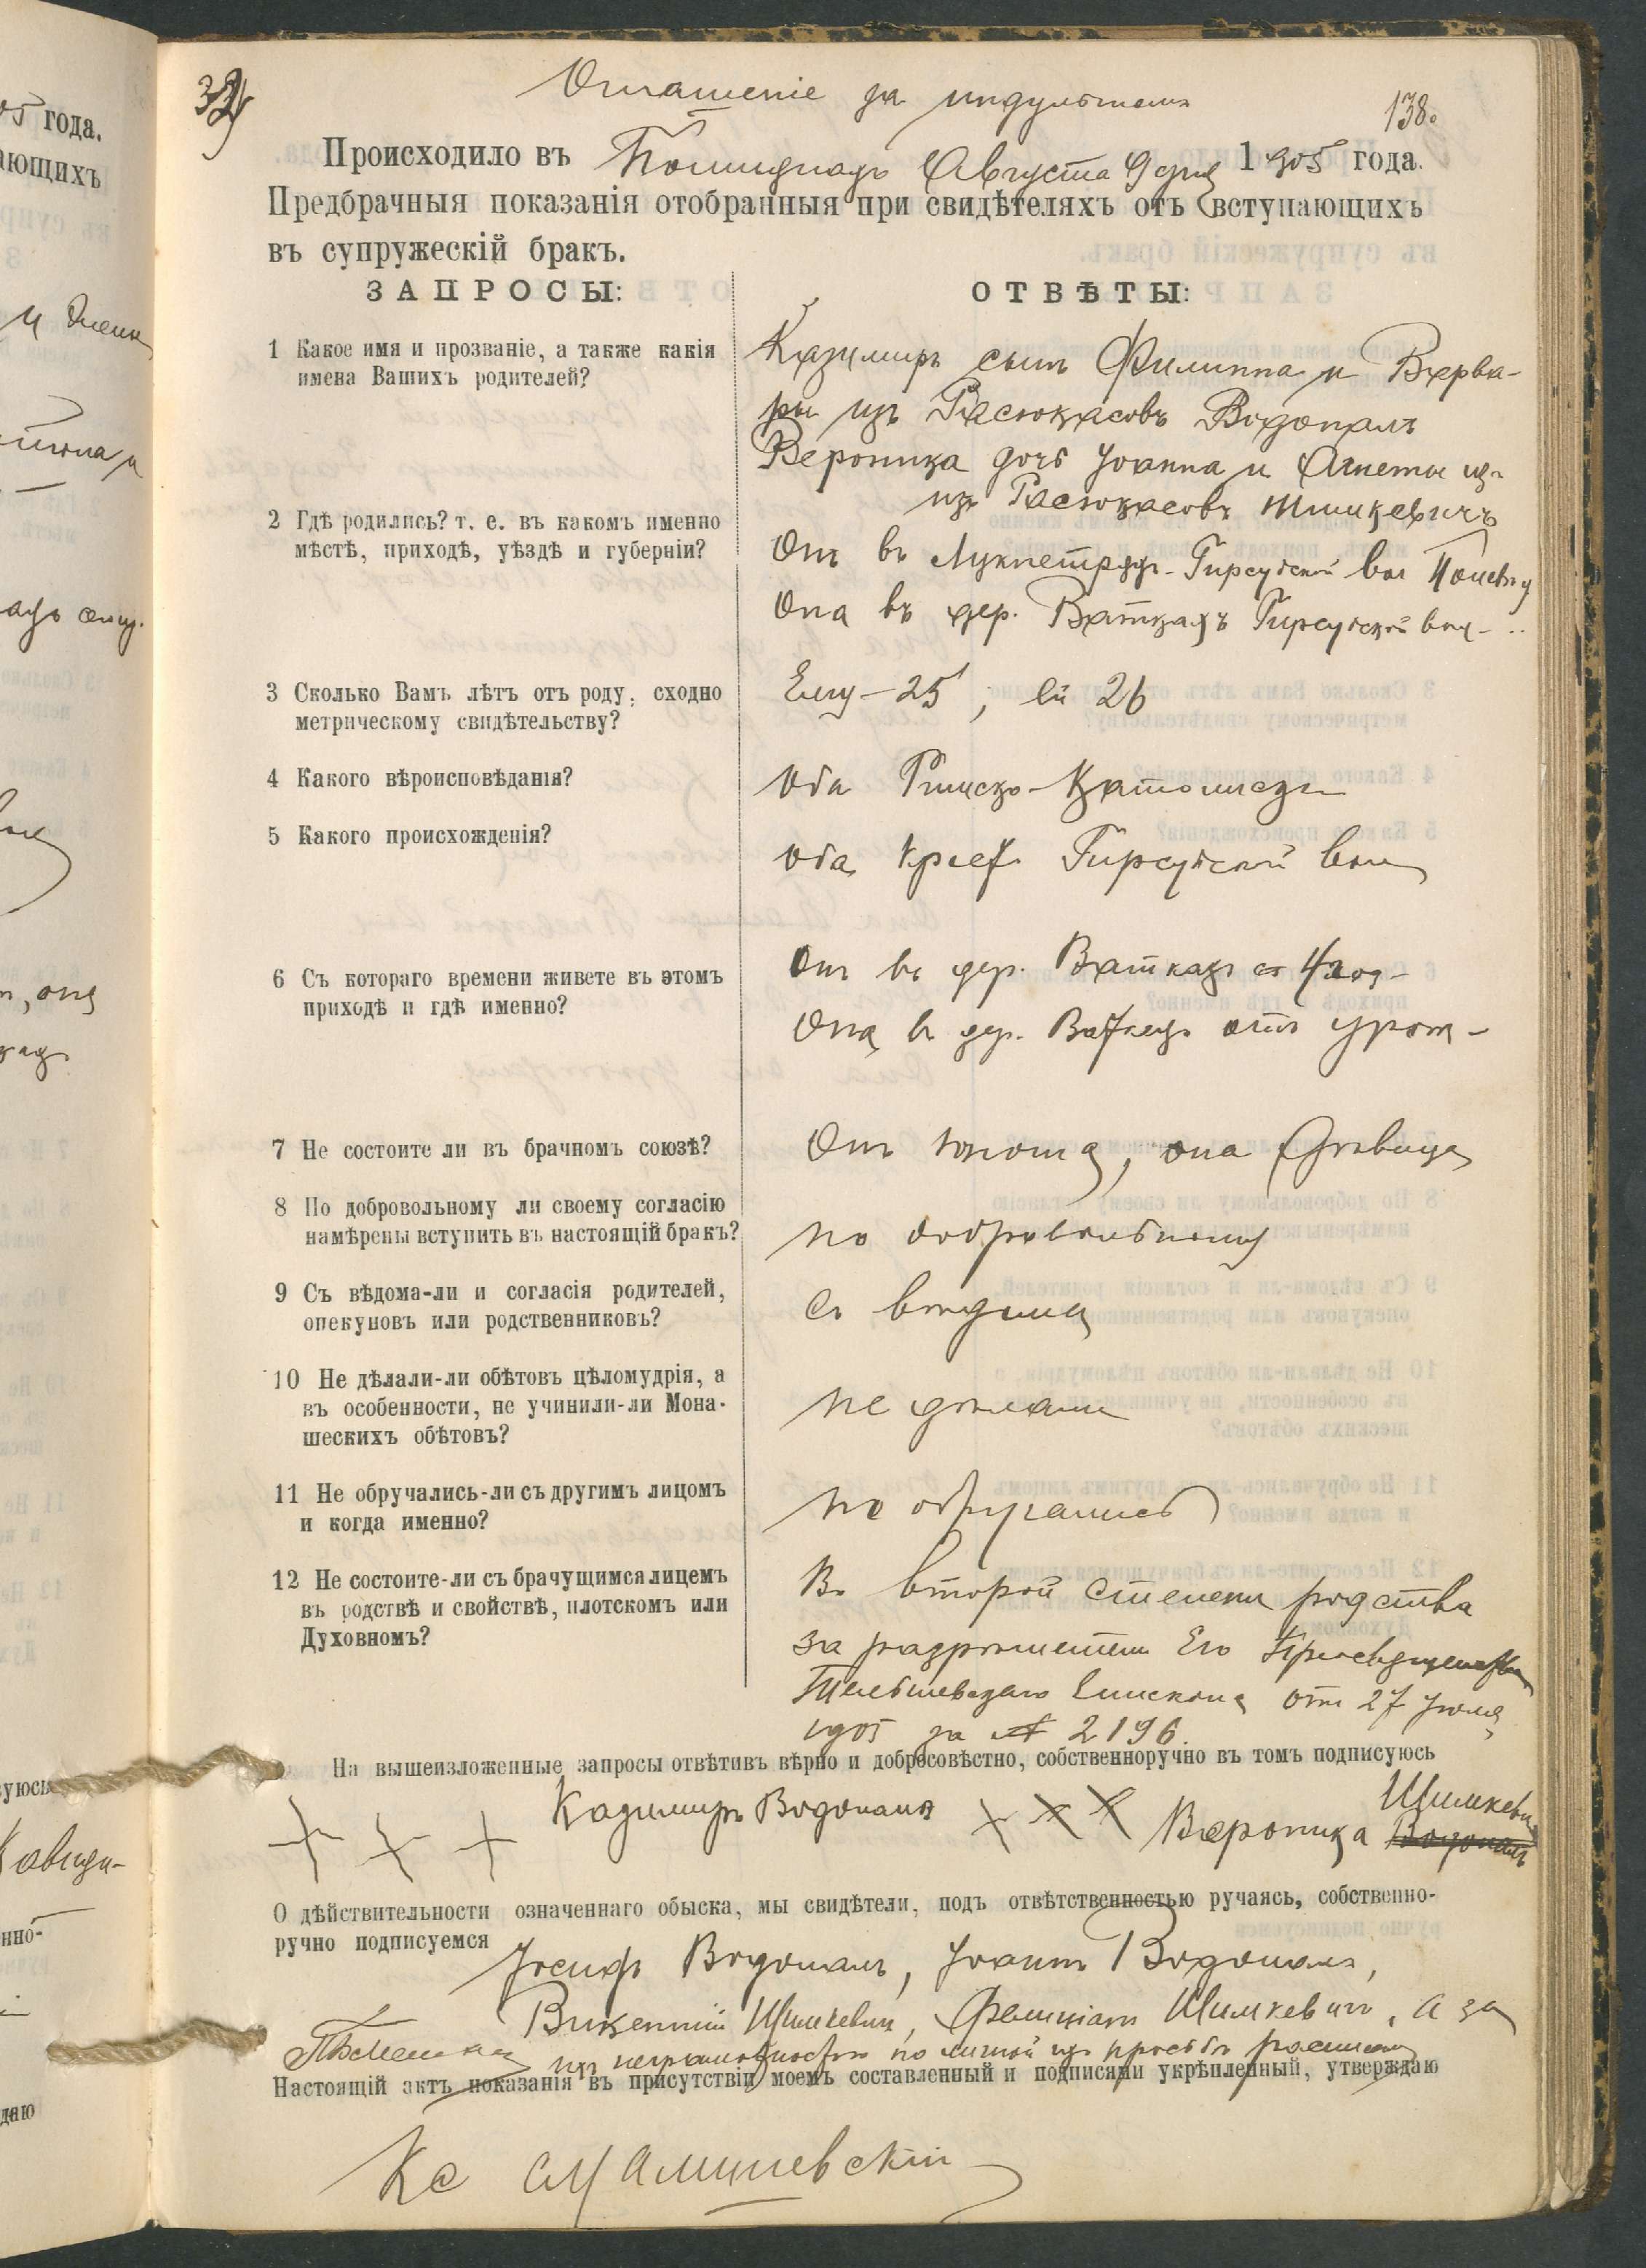 32)
Оглашеніе за индультомъ
138.
Происходило въ Августа 9 дня 1905 года.
Предбрачныя показанія отобранныя при свидѣтеляхъ отъ вступающихъ
въ супружескій бракъ.
ЗАПРОСЫ:
ОТВѢТЫ:
1 Какое имя и прозваніе, а также какія
имена Вашихъ родителей?
Казимиръ сынъ Филиппа и Варва-
ры изъ Расюкасовъ Водопалъ
Вероника дочь Іоанна и Агнеты
изъ Расюкасовъ Шимкевичъ
2 Гдѣ родились? т. е. въ какомъ именно
мѣстѣ, приходѣ, уѣздѣ и губерніи?
Онъ въ Гирсудской вол
Она въ дер. Ваткахъ Гирсудской вол-
3 Сколько Вамъ лѣтъ отъ роду, сходно
метрическому свидѣтельству?
Ему - 25, ей 26
4 Какого вѣроисповѣданія?
Оба Римско-Католики
5 Какого происхожденія?
Оба крест Гирсудской вол
6 Съ котораго времени живете въ этомъ
приходѣ и гдѣ именно?
Онъ въ дер. Ваткахъ 4 год-
Она въ дер. отъ урож-
7 Не состоите ли въ брачномъ союзѣ?
Онъ юноша, она дѣвица
8 По добровольному ли своему согласію
намѣрены вступить въ настоящій бракъ?
По добровольному
9 Съ вѣдома-ли и согласія родителей,
опекуновъ или родственниковъ?
Съ вѣдома
10 Не дѣлали-ли обѣтовъ цѣломудрія, а
въ особенности, не учинили-ли Мона-
шескихъ обѣтовъ?
Не дѣлали
11 Не обручались-ли съ другимъ лицомъ
и когда именно?
Не обручались
12 Не состоите-ли съ брачущимся лицемъ
въ родствѣ и свойствѣ, плотскомъ или
Духовномъ?
Во второй степени родства
за разрѣшеніемъ Его Преосвященства
Тельшевскаго Епископа отъ 27 Іюля
1905 за № 2196.
На вышеизложенные запросы отвѣтивъ вѣрно и добросовѣстно, собственноручно въ томъ подписуюсь
+ + + Казимиръ Водопалъ + + + Вероника Водопалъ Шимкевич
О дѣйствительности означеннаго обыска, мы свидѣтели, подъ отвѣтственностью ручаясь, собственно-
ручно подписуемся
Іосифъ Водопалъ, Іоаннъ Водопалъ,
Викентій Шимкевич, Фелиціанъ Шимкевичъ, а за
ихъ неграмотностью по личной ихъ просьбѣ
Настоящій актъ показанія въ присутствіи моемъ составленный и подписями укрѣпленный, утверждаю
Кс